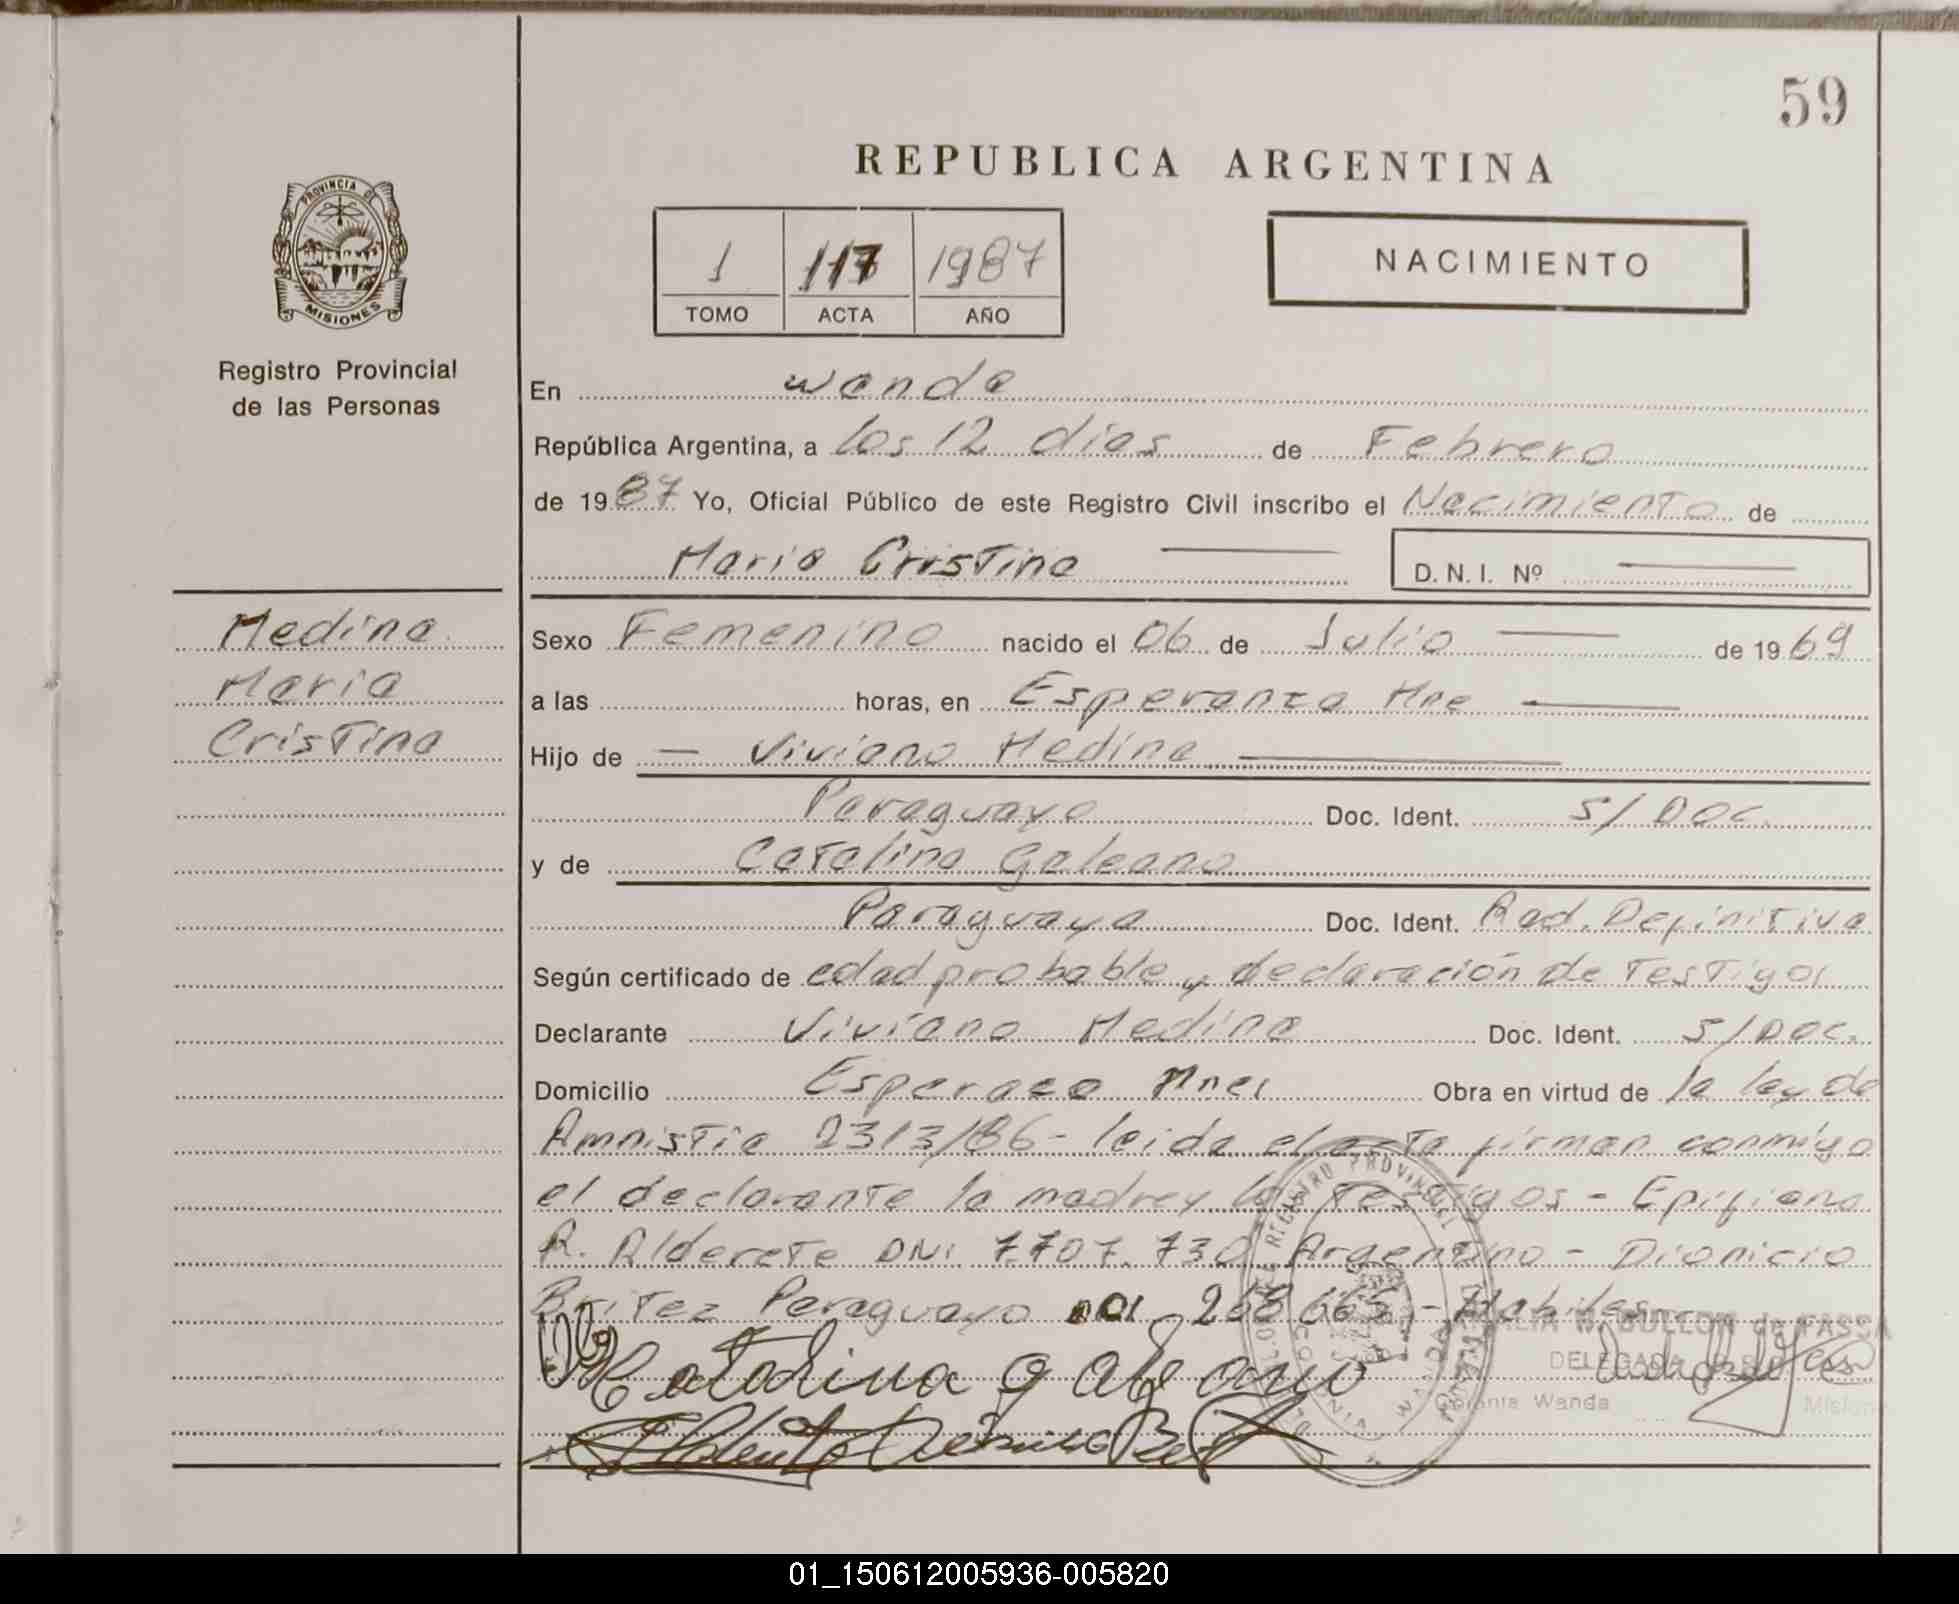 59
REPUBLICA ARGENTINA
PROVINCIA DE
MISIONES
1 117 1987
TOMO ACTA AÑO
NACIMIENTO
Registro Provincial
de las Personas
En Wanda
República Argentina, a los 12 días de Febrero
de 1987 Yo, Oficial Público de este Registro Civil inscribo el Nacimiento de
Maria Cristina D. N. I. Nº
Medina
Maria
Cristina
Sexo Femenino nacido el 06 de Julio de 1969
a las horas, en Esperanza Mnes
Hijo de Viviano Medina
Paraguayo Doc. Ident. S/ DOC.
y de Catalina Galeano
Paraguaya Doc. Ident. Rad. Definitiva
Según certificado de edad probable y declaración de Testigos
Declarante Viviano Medina Doc. Ident. S/DOC.
Domicilio Mnes Obra en virtud de la ley de
Amnistia 2313/86- leida el acta firman conmigo
el declarante la madre y los Testigos - Epifiano
R. Alderete DNI 7.707.730 Argentino - Dionicio
Britez Paraguayo 268 665 - Habiles
Catalina galeano
DELEGADA
Colonia Wanda Misiones
01_150612005936-005820